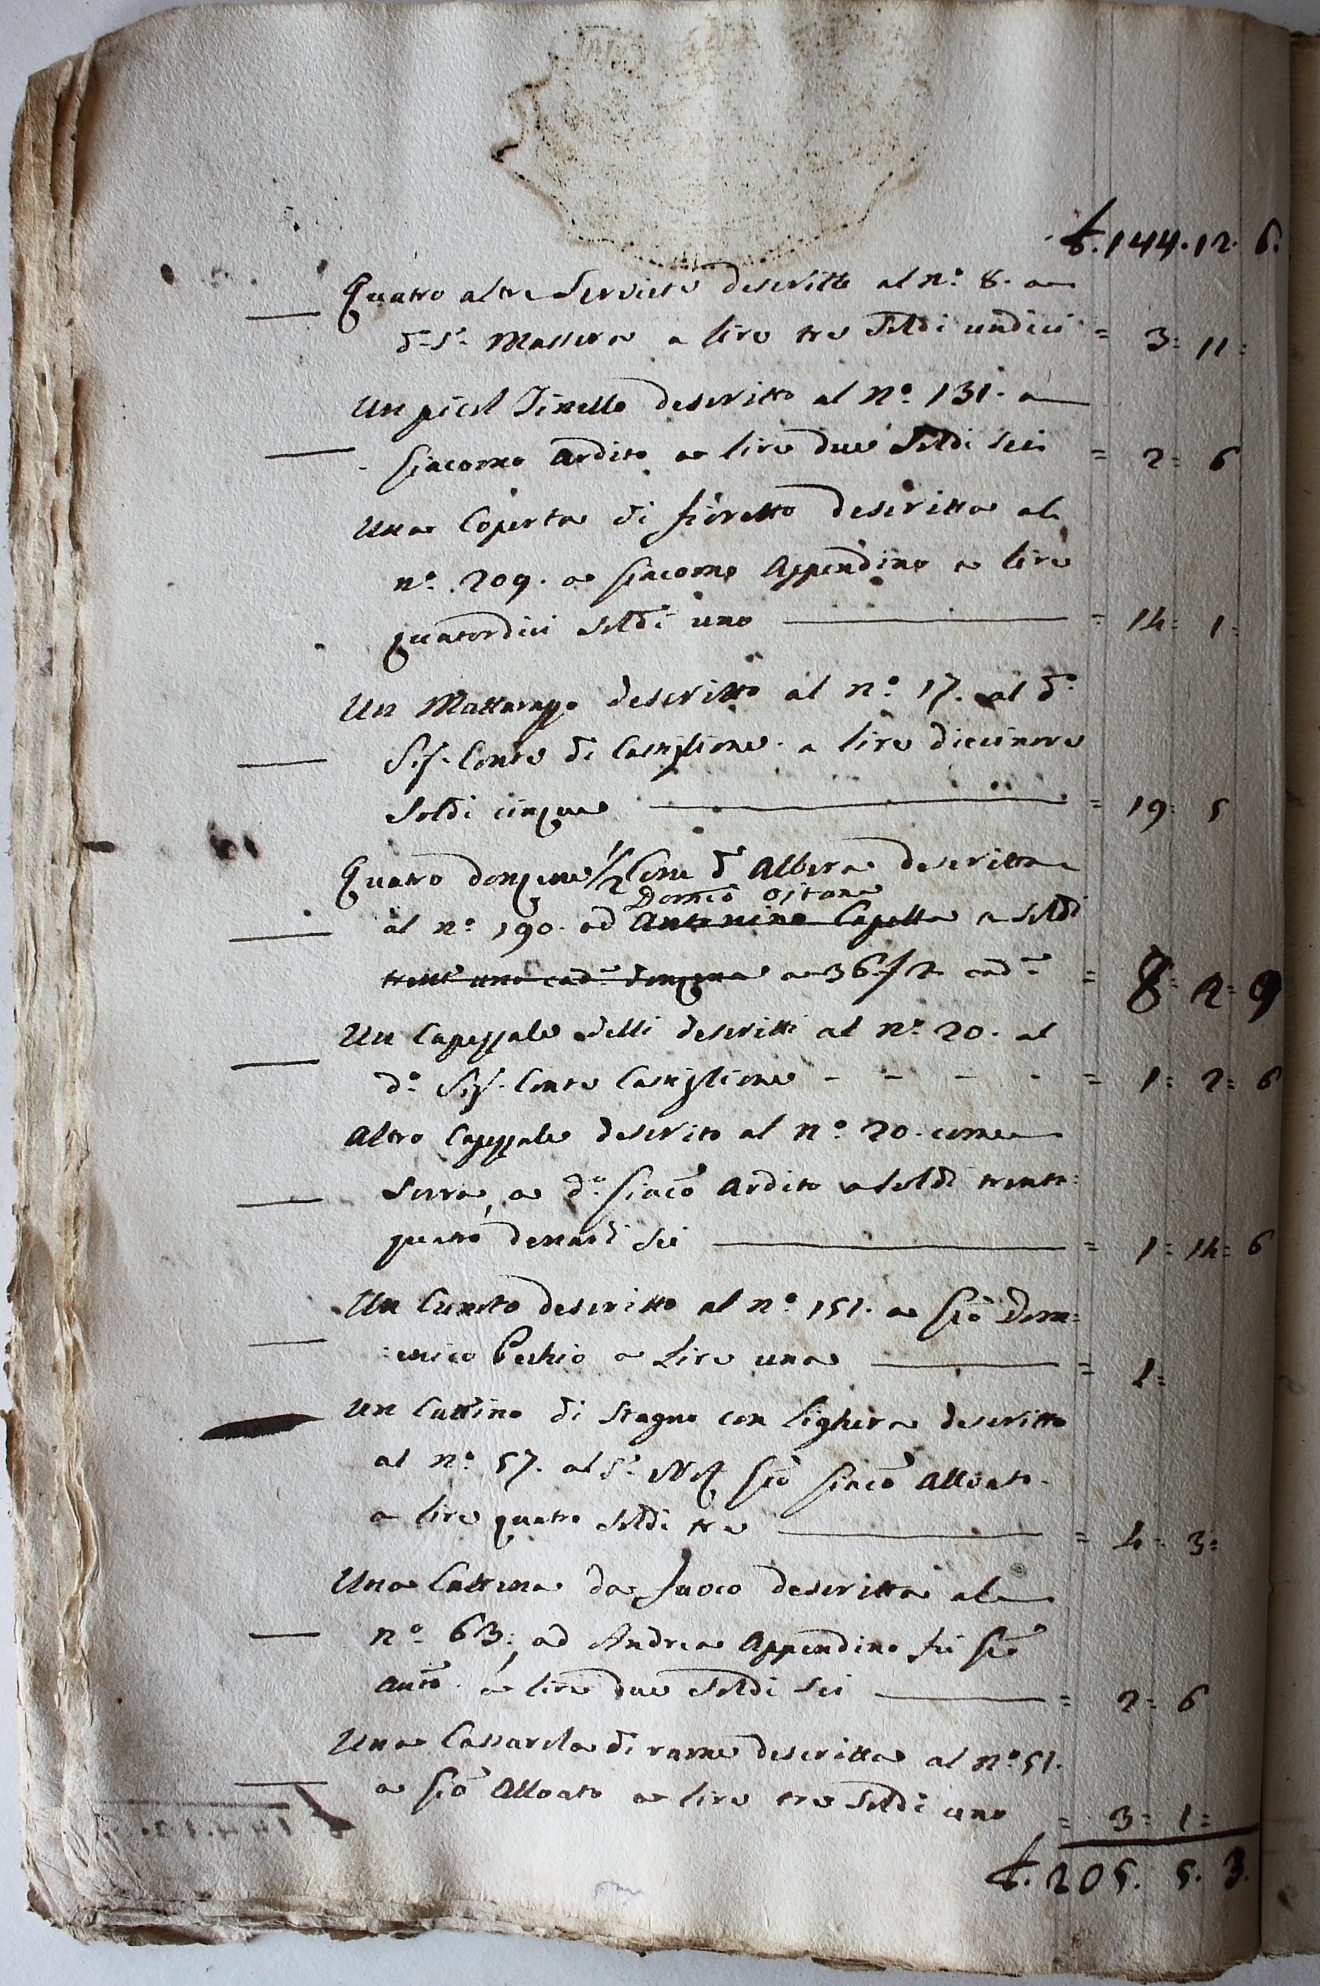 £. 144. 12. 6.
Quatro altre Serviete descritte al n.° 8. a
d.° S.r Massera a lire tre Soldi undici = 3 = 11 =
Un picol Tinello descritto al n.° 131. a
Giacomo Ardito a lire due Soldi sei = 2 = 6
Una Coperta di fioretto descritta al
n.° 209. a Giacomo Appendino a lire
quatordici Soldi uno = 14 = 1 =
Un Mattarazzo descritto al n.° 17. al d.°
Sig.r Conte di Castiglione a lire diecinove
Soldi cinque = 19 = 5
Quatro donzene 1/2 d' Albera descritte
Dom.co
al n.° 190. ad Antonino Capella a Soldi
trent' uno cad.a donzena a 36. / 2 cad.a = 8 = 4 = 9
Un Capezzale delli descritti al n.° 20. al
d.° Sig.r Conte Castiglione - - - - = 1 = 2 = 6
Altro Capezzale descrito al n.° 20. come
sovra, a d.° Giaco Ardito a Soldi trenta =
quatro denari sei = 1 = 14 = 6
Un descritto al n.° 151. a Gio Dom =
= enico Pechio a Lire una = 1 =
Un Cattino di Stagno con descritto
al n.° 57. al S.r Gio Giaco Alloato
a lire quatro Soldi tre = 4 = 3 =
Una Cattena da fuoco descritta al
n.° 63: ad Andrea Appendino fu Gio
Anto. a lire due Soldi sei = 2 = 6
Una Cassarola di rame descritta al n.° 51.
a Gio Alloato a lire tre Soldi uno = 3 = 1 =
£. 205. 5. 3.